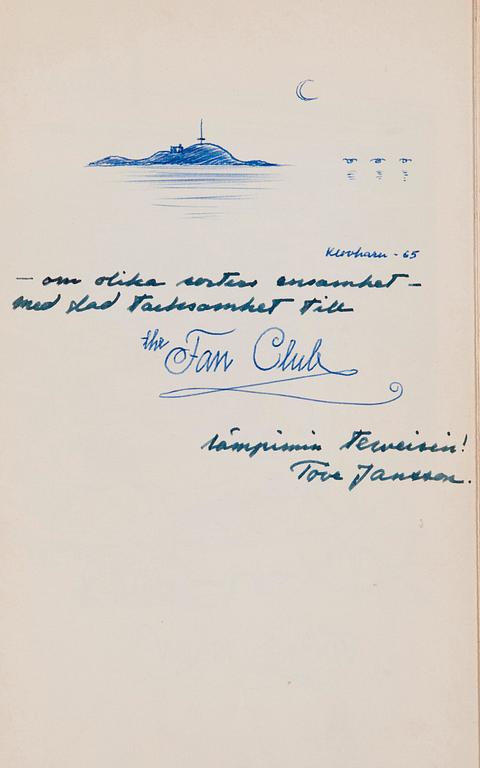 Klovharu - 65
- om olika sorters ensamhet -
med glad tacksamhet till
the Fan Club
lämpimin terveisin!
Tove Jansson.